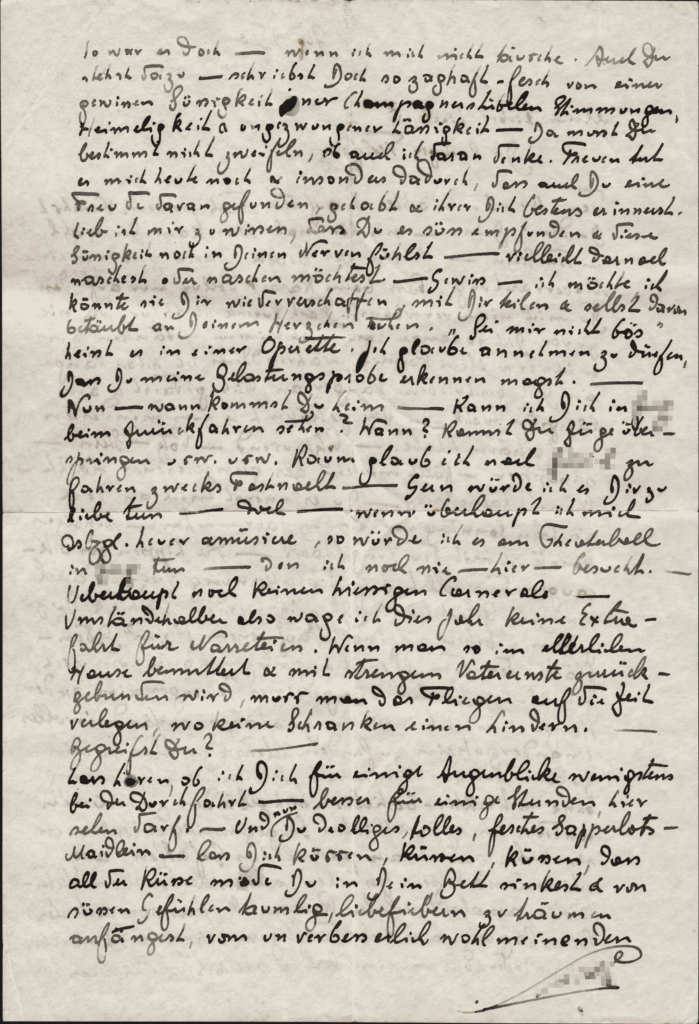 so war es doch — wenn ich mich nicht täusche. Auch Du
stehst dazu — schriebst Doch so zaghaft-fesch von einer
gewissen Süssigkeit jener Champagnerstübelen Stimmungen,
Heimeligkeit & ungezwungener Lässigkeit — Da musst Du
bestimmt nicht zweifeln, ob auch ich daran denke. Freuen tut
es mich heute noch & insonders dadurch, dass auch Du eine
Freude daran gefunden, gehabt & ihrer Dich bestens erinnerst.
Lieb ist mir zu wissen, dass Du es süss empfunden & diese
Süssigkeit noch in Deinen Nerven fühlst — vielleicht darnach
naschest oder naschen möchtest — Gewiss — ich möchte ich
könnte sie Dir wiederverschaffen, mit Dir teilen & selbst daran
betäubt an Deinem Herzchen ruhen. „Sei mir nicht bös"
heisst es in einer Operette. Ich glaube annehmen zu dürfen,
dass Du meine Belastungsprobe erkennen magst. —
Nun — wann kommst Du heim — Kann ich Dich in
beim zurückfahren sehen? Wann? Kannst Du Züge über-
springen usw. usw. Kaum glaub ich nach zu
fahren zwecks Fastnacht — Gern würde ich es Dir zu
liebe tun — doch — wenn überhaupt ich mich
dsbzgl. heuer amüsiere, so würde ich es am Theaterball
in tun — den ich noch nie — hier — besucht. —
Ueberhaupt noch keinen hiesigen Carneval. —
Umständehalber also wage ich dies Jahr keine Extra-
fahrt für Narreteien. Wenn man so im elterlichen
Hause bemuttert & mit strengem Vaterernste zurück-
gebunden wird, muss man das Fliegen auf die Zeit
verlegen, wo keine Schranken einen hindern. —
Begreifst Du? —
Lass hören, ob ich Dich für einige Augenblicke wenigstens
bei der Durchfahrt — besser für einige Stunden, hier
sehen darf. — Und nun Du drolliges, tolles, fesches Sapperlots-
Maidlein — lass Dich küssen, küssen, küssen, dass
all der Küsse müde Du in Dein Bett sinkest & von
süssen Gefühlen taumlig, liebefiebern zu träumen
anfängest, vom unverbesserlich wohlmeinenden